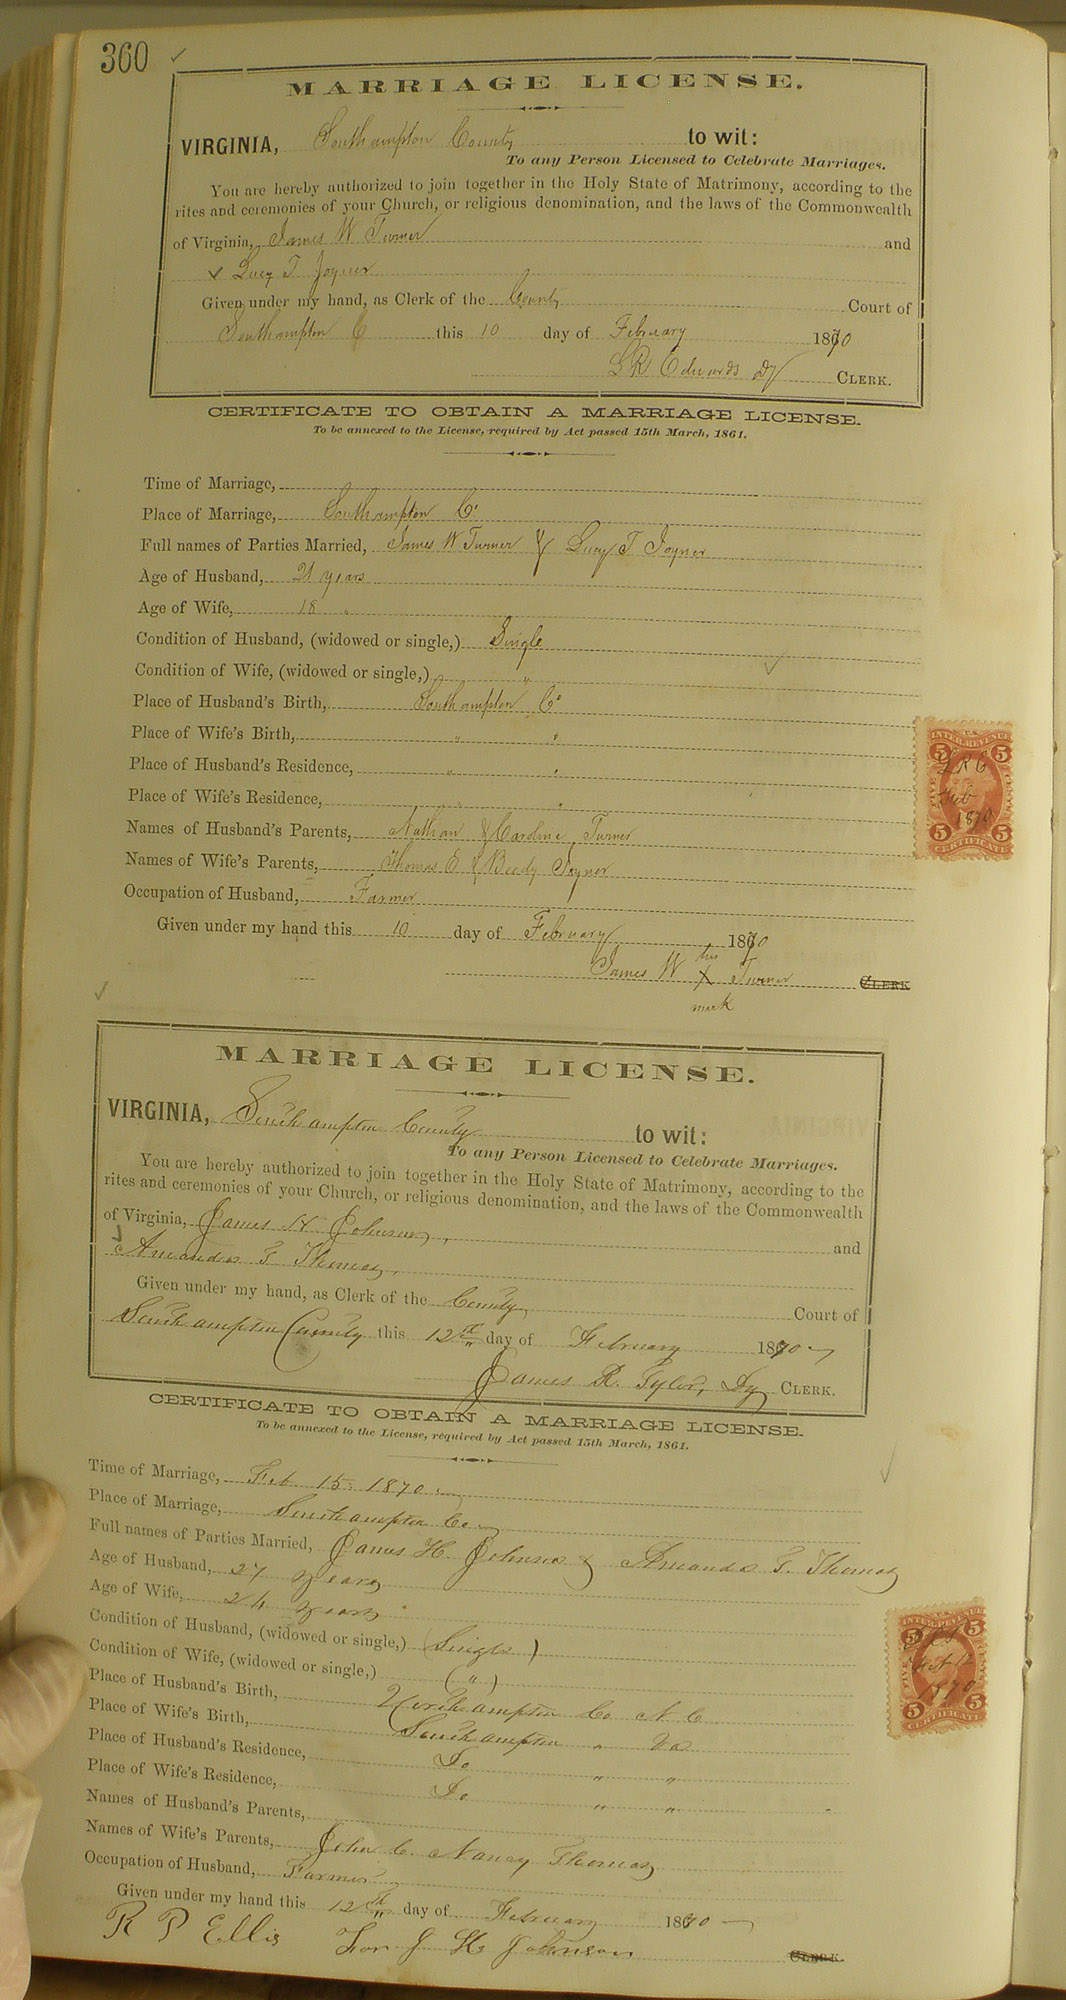 360
MARRIAGE LICENSE.
VIRGINIA, Southampton County to wit:
To any Person Licensed to Celebrate Marriages.
You are hereby authorized to join together in the Holy State of Matrimony, according to the
rites and ceremonies of your Church, or religious denomination, and the laws of the Commonwealth
of Virginia, James W Turner and
Lucy T Joyner
Given under my hand, as Clerk of the County Court of
Southampton C this 10 day of February 1870
L R Edwards Dy CLERK.
CERTIFICATE TO OBTAIN A MARRIAGE LICENSE.
To be annexed to the License, required by Act passed 15th March, 1861.
Time of Marriage,
Place of Marriage, Southampton Co
Full names of Parties Married, James W Turner & Lucy T Joyner
Age of Husband, 21 years
Age of Wife, 18 "
Condition of Husband, (widowed or single,) Single
Condition of Wife, (widowed or single,) "
Place of Husband's Birth, Southampton Co
Place of Wife's Birth, " "
Place of Husband's Residence, " "
Place of Wife's Residence, " "
Names of Husband's Parents, Nathan & Caroline Turner
Names of Wife's Parents, Thomas E & Joyner
Occupation of Husband, Farmer
Given under my hand this 10 day of February 1870
his
James W X Turner CLERK
mark
INTER. REVENUE
5 5
L R E
Feb
1870
FIVE CENTS
5 5
CERTIFICATE
MARRIAGE LICENSE.
VIRGINIA, Southampton County to wit:
To any Person Licensed to Celebrate Marriages.
You are hereby authorized to join together in the Holy State of Matrimony, according to the
rites and ceremonies of your Church, or religious denomination, and the laws of the Commonwealth
of Virginia, James H Johnson, and
Amanda F Thomas,
Given under my hand, as Clerk of the County Court of
Southampton County this 12th day of February 1870
James R. Tyler, Dy CLERK.
CERTIFICATE TO OBTAIN A MARRIAGE LICENSE.
To be annexed to the License, required by Act passed 15th March, 1861.
Time of Marriage, Feb 15, 1870
Place of Marriage, Southampton Co
Full names of Parties Married, James H. Johnson & Amanda F. Thomas
Age of Husband, 27 years
Age of Wife, 24 years
Condition of Husband, (widowed or single,) (Single)
Condition of Wife, (widowed or single,) (")
Place of Husband's Birth, Northampton Co N. C
Place of Wife's Birth, Southampton " Va
Place of Husband's Residence, Do " "
Place of Wife's Residence, Do " "
Names of Husband's Parents,
Names of Wife's Parents, John C. Nancy Thomas
Occupation of Husband, Farmer
Given under my hand this 12th day of February 1870
R P Ellis For J H Johnson CLERK.
INTER. REVENUE
5 5
Feb 12
1870
FIVE CENTS
5 5
CERTIFICATE